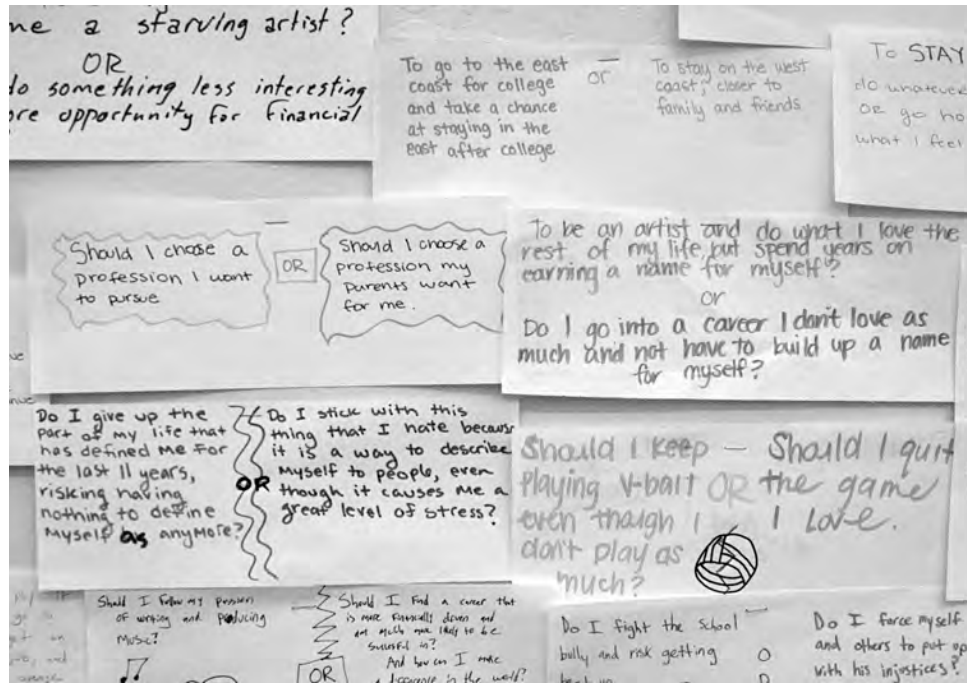 me a starving artist?
OR
do something less interesting
ore opportunity for financial
To go to the east
coast for college
and take a chance
at staying in the
east after college
or
To stay on the west
coast, closer to
family and friends
To STAY
do whatever
OR go ho
what I feel
Should I chose a
profession I want
to pursue
OR
Should I choose a
profession my
parents want
for me.
To be an artist and do what I love the
rest of my life, but spend years on
earning a name for myself?
or
Do I go into a career I don't love as
much and not have to build up a name
for myself?
Do I give up the
part of my life that
has defined me for
the last 11 years,
risking having
nothing to define
myself as anymore?
OR
Do I stick with this
thing that I hate because
it is a way to describe
myself to people, even
though it causes me a
great level of stress?
Should I keep –
playing v-ball
even though I
don't play as
much?
OR
Should I quit
the game
I love.
Should I follow my passion
of writing and producing
music?
OR
Should I find a career that
is more financially driven and
am much more likely to be
successful in?
And how can I make
a difference in the world?
Do I fight the school
bully and risk getting
beat up
O
Do I force myself
and others to put up
with his injustices?